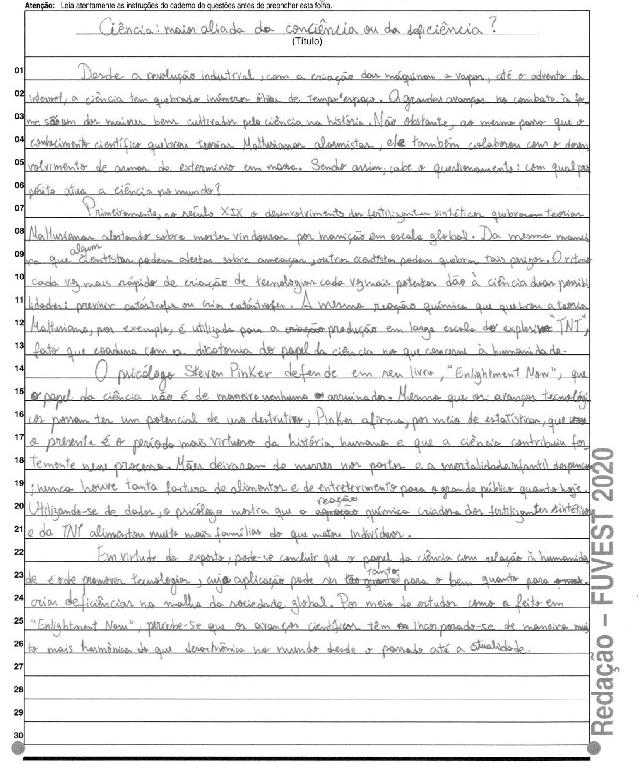 Atenção: Leia atentamente as instruções do caderno de questões antes de preencher esta folha.
Ciência: maior aliada da conciência ou da deficiência?
(Título)
01 Desde a revolução industrial, com a criação das máquinas a vapor, até o advento da
02 internet, a ciência tem quebrado inúmeros de tempo espaço. Os grandes avanços no combate à fo-
03 me são um dos maiores bens cultivados pela ciência na história. Não obstante, ao mesmo passo que o
04 conhecimento científico quebrou teorias Maltusianas alarmistas, ele também colaborou com o desen
05 volvimento de armas de extermínio em massa. Sendo assim, cabe o questionamento: com qual pro
06 pósito atua a ciência no mundo?
07 Primeiramente, no século XIX o desenvolvimento dos fertilizantes sintéticos quebraram teorias
08 Maltusianas alertando sobre mortes vindouras por inanição em escala global. Da mesma manei
09 ra que alguns cientistas podem alertar sobre ameaças, outros cientistas podem quebrar tais perigos. O ritmo
10 cada vez mais rápido de criação de tecnologias cada vez mais potentes dão à ciência duas possibi
11 lidades: previnir catástrofes ou cria catástrofes. A mesma reação química que quebrou a teoria
12 Maltusiana, por exemplo, é utilizada para a produção em larga escala do explosivo "TNT",
13 fato que coaduna com a dicotomia do papel da ciência no que concerne à humanidade.
14 O psicólogo Steven Pinker defende em seu livro, "Enlightment Now", que
15 o papel da ciência não é de maneira nenhuma o arruinador. Mesmo que os avanços tecnológi
16 cos possam ter um potencial de uso destrutivo, Pinker afirma, por meio de estatísticas, que
17 o presente é o período mais virtuoso da história humana e que a ciência contribuiu for
18 temente nesse processo. Mães deixaram de morrer nos partos e a mortalidade infantil despencou
19 ; nunca houve tanta fartura de alimentos e de entreterimento para o grande público quanto hoje.
20 Utilizando-se de dados, o psicólogo mostra que a reação química criadora dos fertilizantes sintéticos
21 e da TNT alimentou muito mais famílias do que matou indivíduos.
22 Em virtude do exposto, pode-se concluir que o papel da ciência com relação à humanida
23 de é o de promover tecnologias, cuja aplicação pode ser tanto para o bem quanto para
24 criar deficiências na malha da sociedade global. Por meio de estudos como o feito em
25 "Enlightment Now", percebe-se que os avanços científicos têm incorporado-se de maneira mui
26 to mais harmônica do que desarmônica no mundo desde o passado até a atualidade.
27
28
29
30
Redação – FUVEST 2020